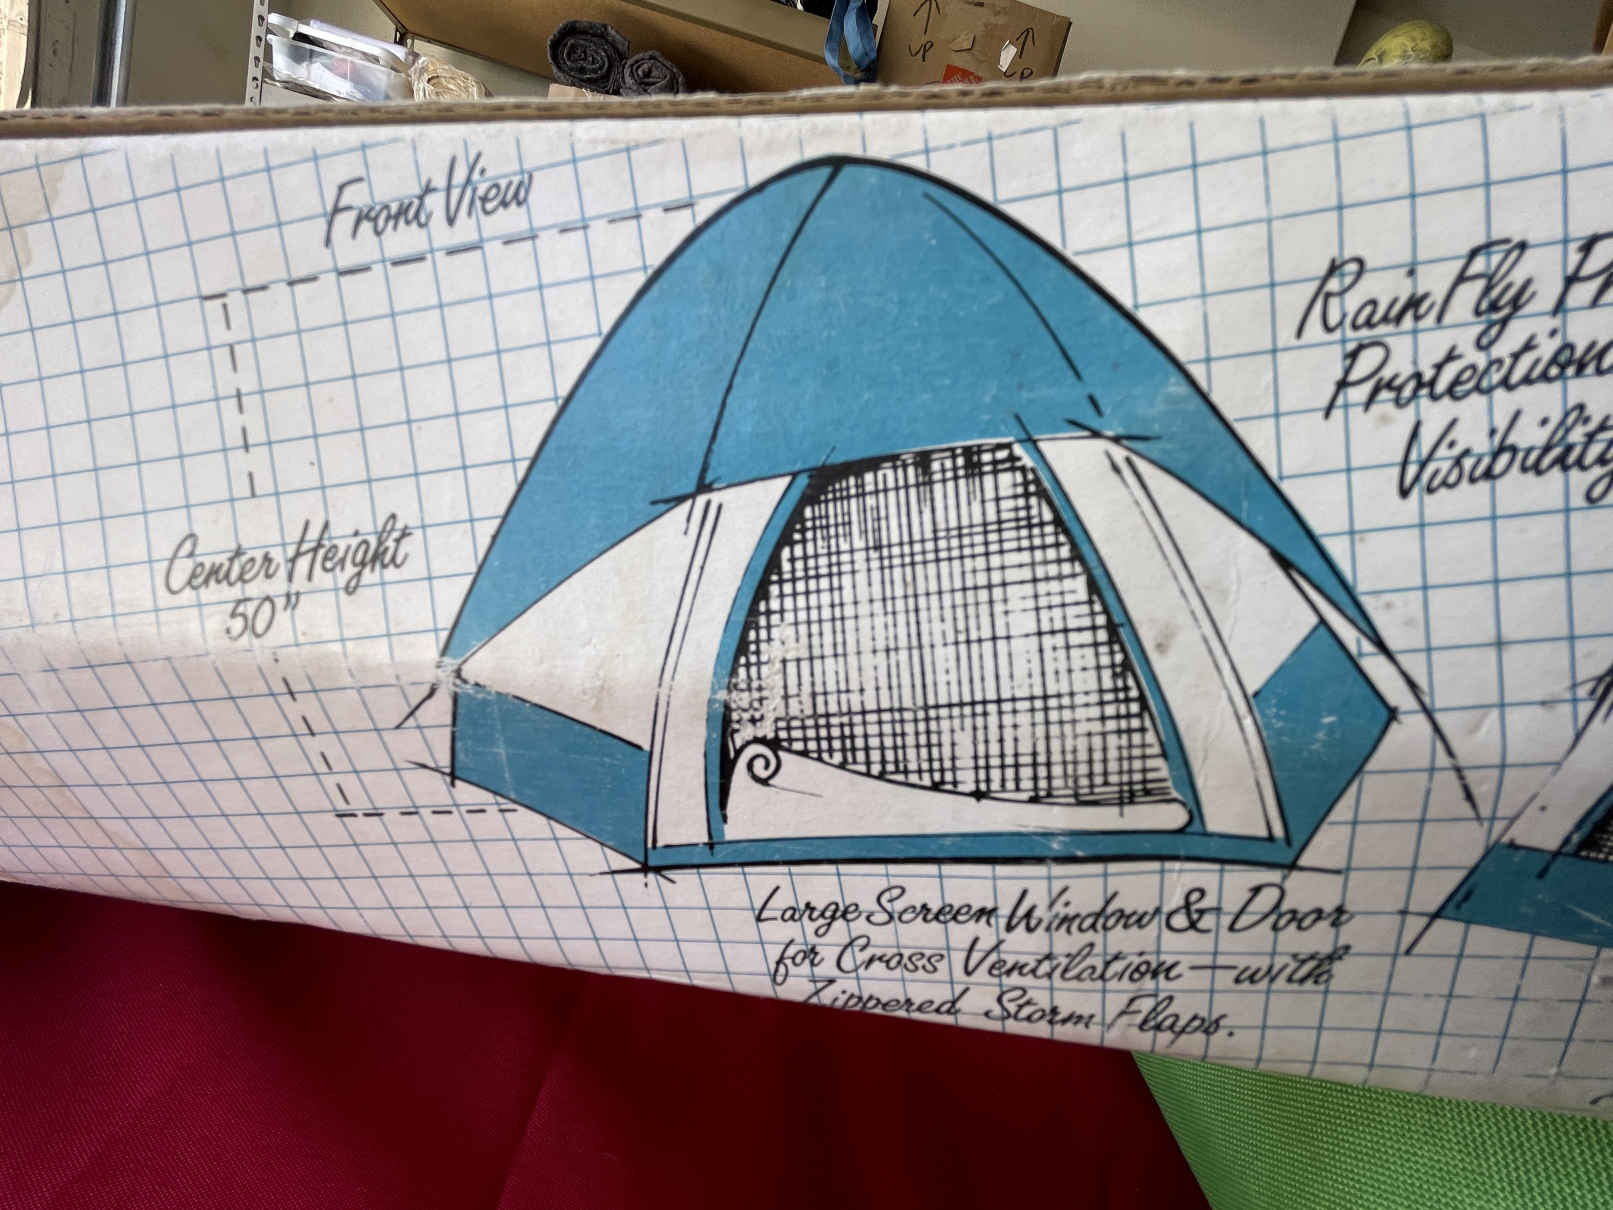 UP
UP
Front View
Rain Fly
Protection
Visibility
Center Height
50"
Large Screen Window & Door
for Cross Ventilation—with
Zippered Storm Flaps.